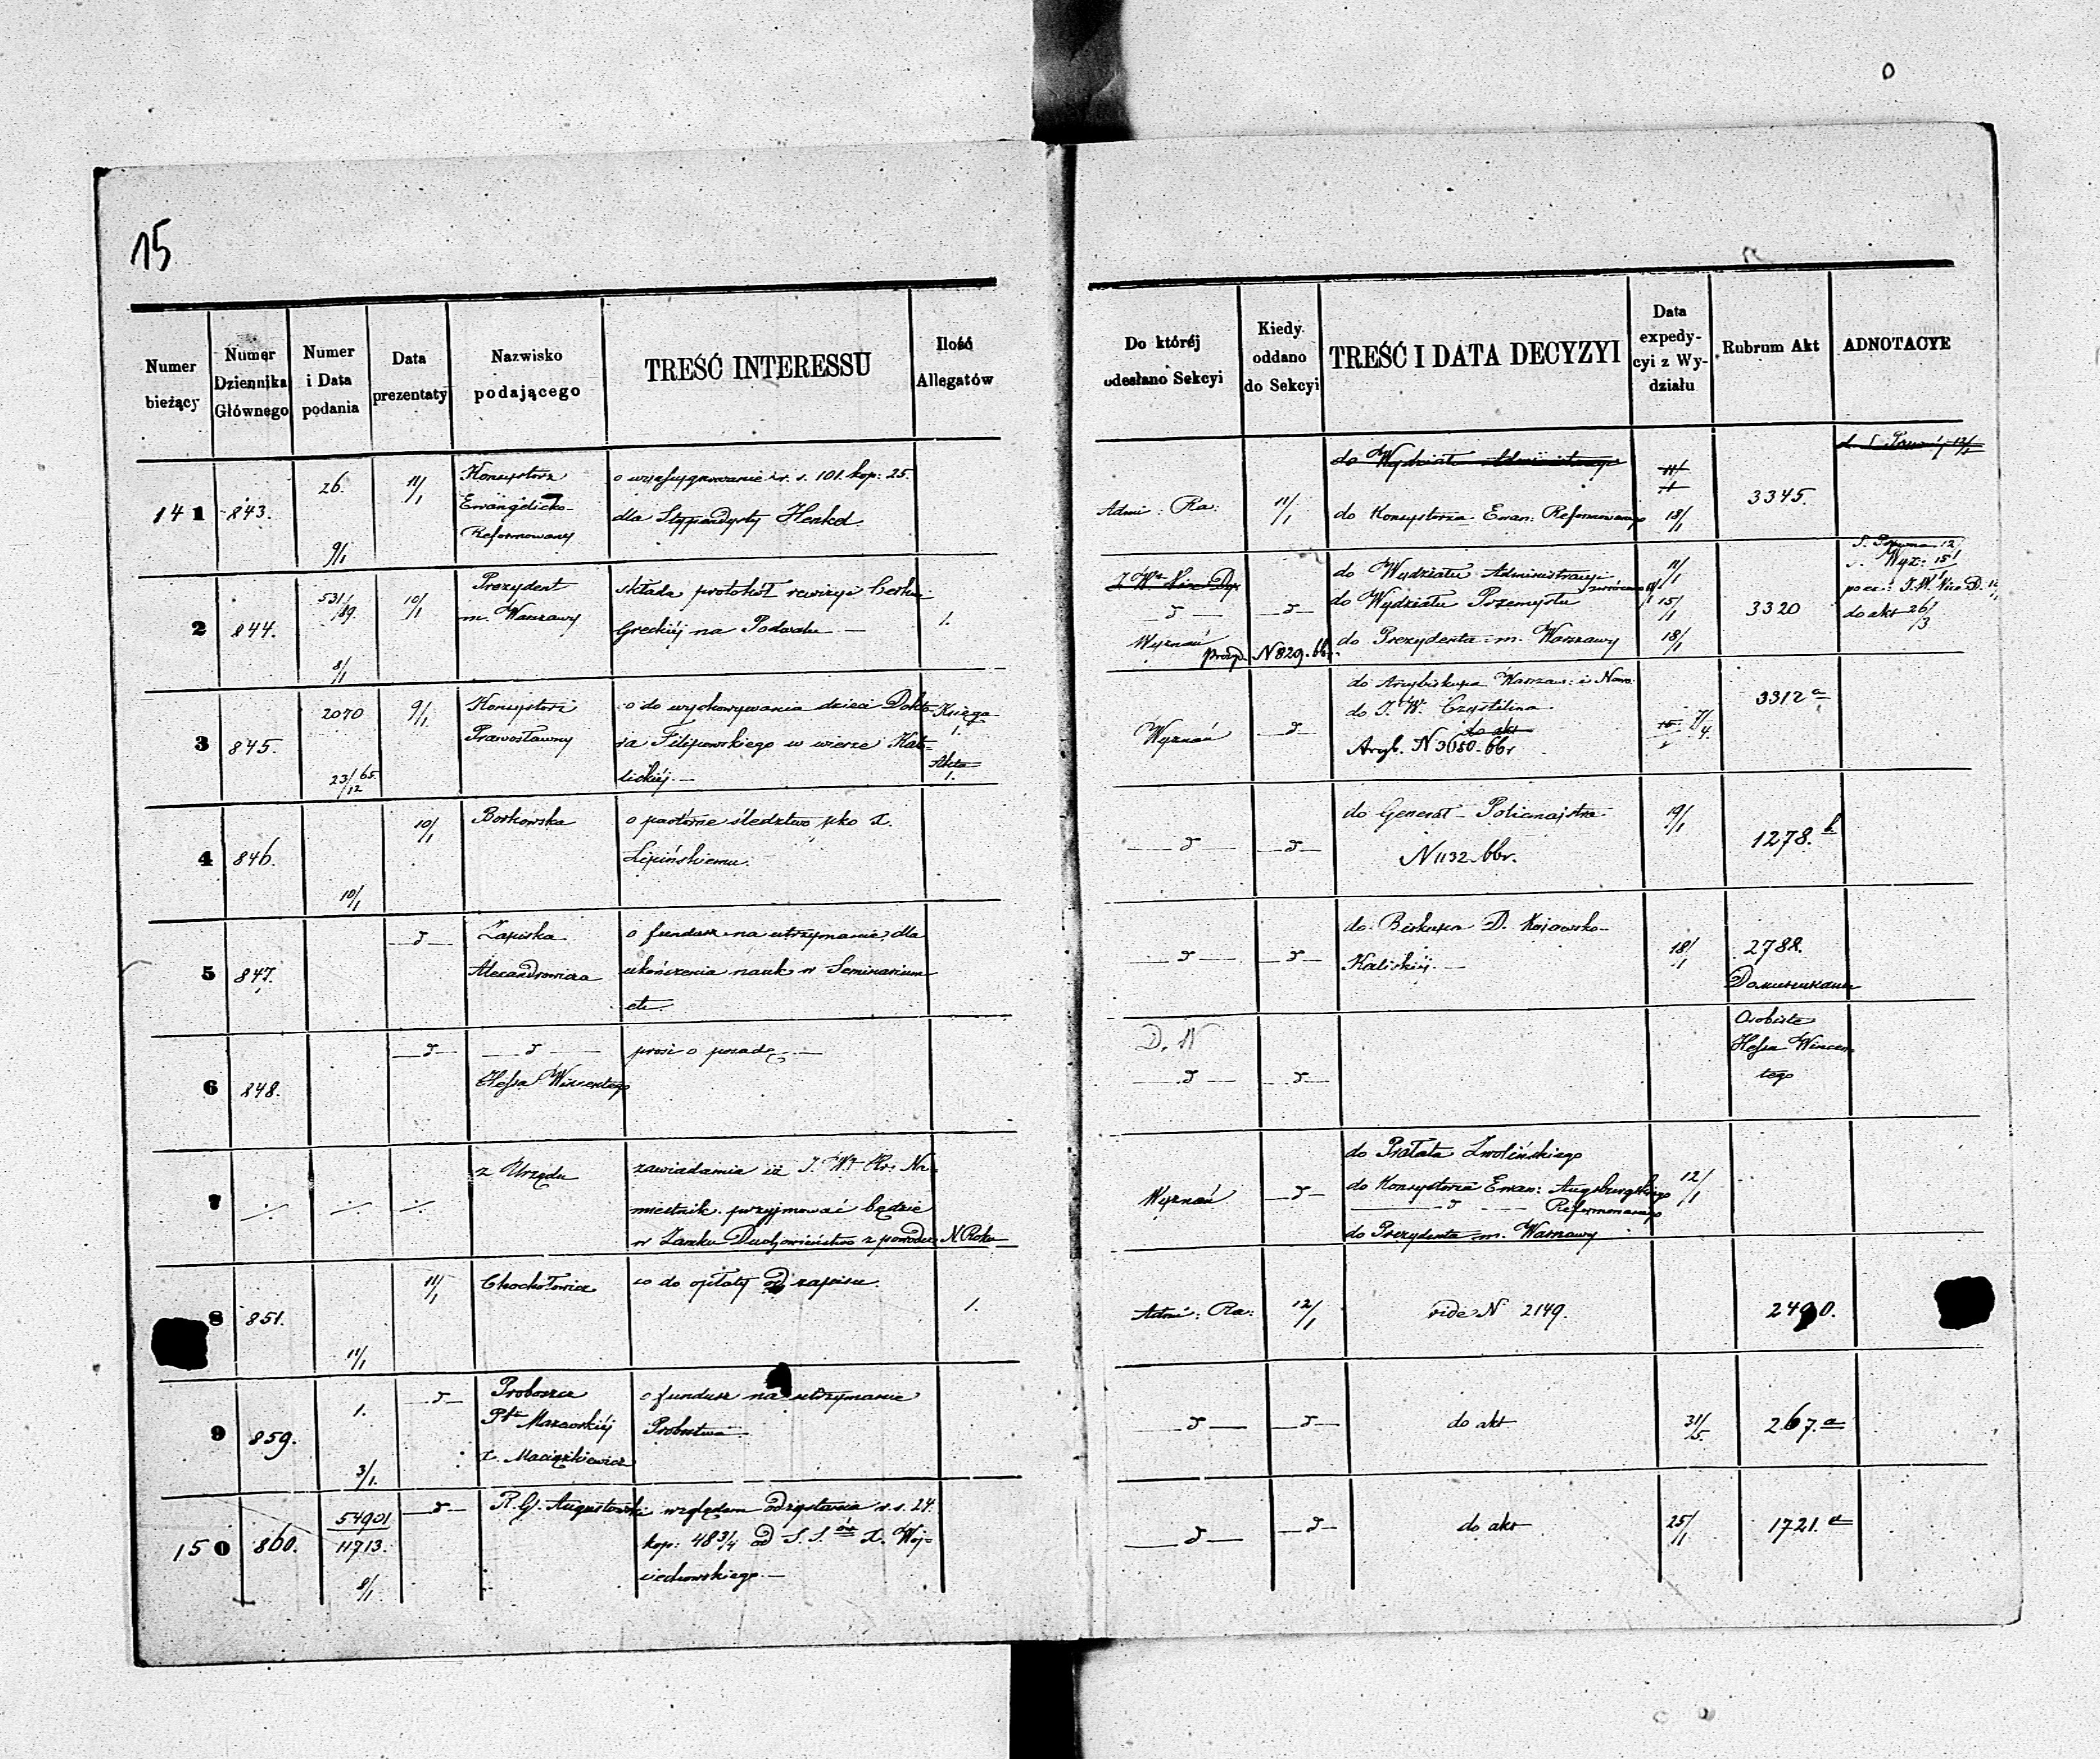 15
Numer bieżący
Numer Dziennika Głównego
Numer i Data podania
Data prezentaty
Nazwisko podającego
TREŚĆ INTERESSU
Ilość Allegatów
Do któréj odesłano Sekcyi
Kiedy oddano do Sekcyi
TREŚĆ I DATA DECYZYI
Data expedycyi z Wydziału
Rubrum Akt
ADNOTACYE
141 843. 26. 9/1 11/1
Konsystorz
Ewangelicko-
Reformowany
o wyasygnowanie r. s. 101. kop: 25.
dla Stypendysty Henkel
Admi: Ra: 11/1
do Wydziału Administracyi
do Konsystorza Ewan: Reformowanego 18/1
3345.
2 844. 531/89. 8/1 10/1
Prezydent
m. Warszawy
składa protokół rewizyi Cerkwi
Greckiéj na Podwalu —
1.
Wyznań
N 829. bbr.
do Wydziału Administracyi 11/1
do Wydziału Przemysłu 15/1
do Prezydenta m. Warszawy 18/1
3320
do akt 26/3
3 845. 2070 23/12 65. 9/1
Konsystorz
Prawosławny
o do wychowywania dzieci Dokto-
ra Filipowskiego w wierze Kato-
lickiéj. —
Księga 1.
Akta 1.
Wyznań
do Arcybiskupa Warszaw: i Nowo.
do J. W.
do akt
Aryb. N 3050 bbr
3312 a
4 846. 10/1 10/1
Borkowska
o powtórne śledztwo pko X.
Lipińskiemu.
do Generał-Policmajstra
N 1132 bbr.
19/1
1278. b
5 847.
Zapiska
Alexandrowicza
o fundusz na utrzymanie, dla
ukończenia nauk w Seminarium
etc.
do Biskupa D. Kujawsko-
Kaliskiéj. —
18/1
2788.
6 848.
Hessa Wincentego
prosi o posadę. —
D. N
Osobiste
Hessa Wincen-
tego
7
z Urzędu
zawiadamia iż J. W. Hr: Na-
miestnik przyjmować będzie
w Zamku Duchowieństwo z powodu N. Roku
Wyznań
do Prałata Zwolińskiego
do Konsystorza Ewan: Augsburgskiego
Reformowanego
do Prezydenta m. Warszawy
12/1
8 851. 11/1 11/1
Chochołowicz
co do opłaty od zapisu.
1.
Admi: Ra: 12/1
vide N 2149.
2490.
9 859. 1. 3/1.
Proboszcz
o fundusz na utrzymanie
Probostwa
do akt
31/5.
267. a
150 860. 54901/11713. 8/1
R. G. Augustowski
względem odzyskania r. s. 24.
kop: 48 3/4 od S. S. ów X. Woj-
ciechowskiego. —
do akt
25/1
1721. a